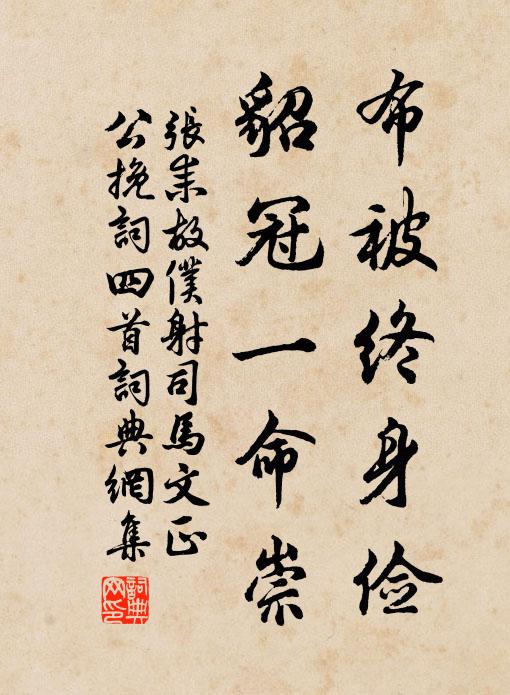 布被终身俭
貂冠一命崇
張耒故僕射司馬文正
公挽詞四首詞典網集
詞典
网印